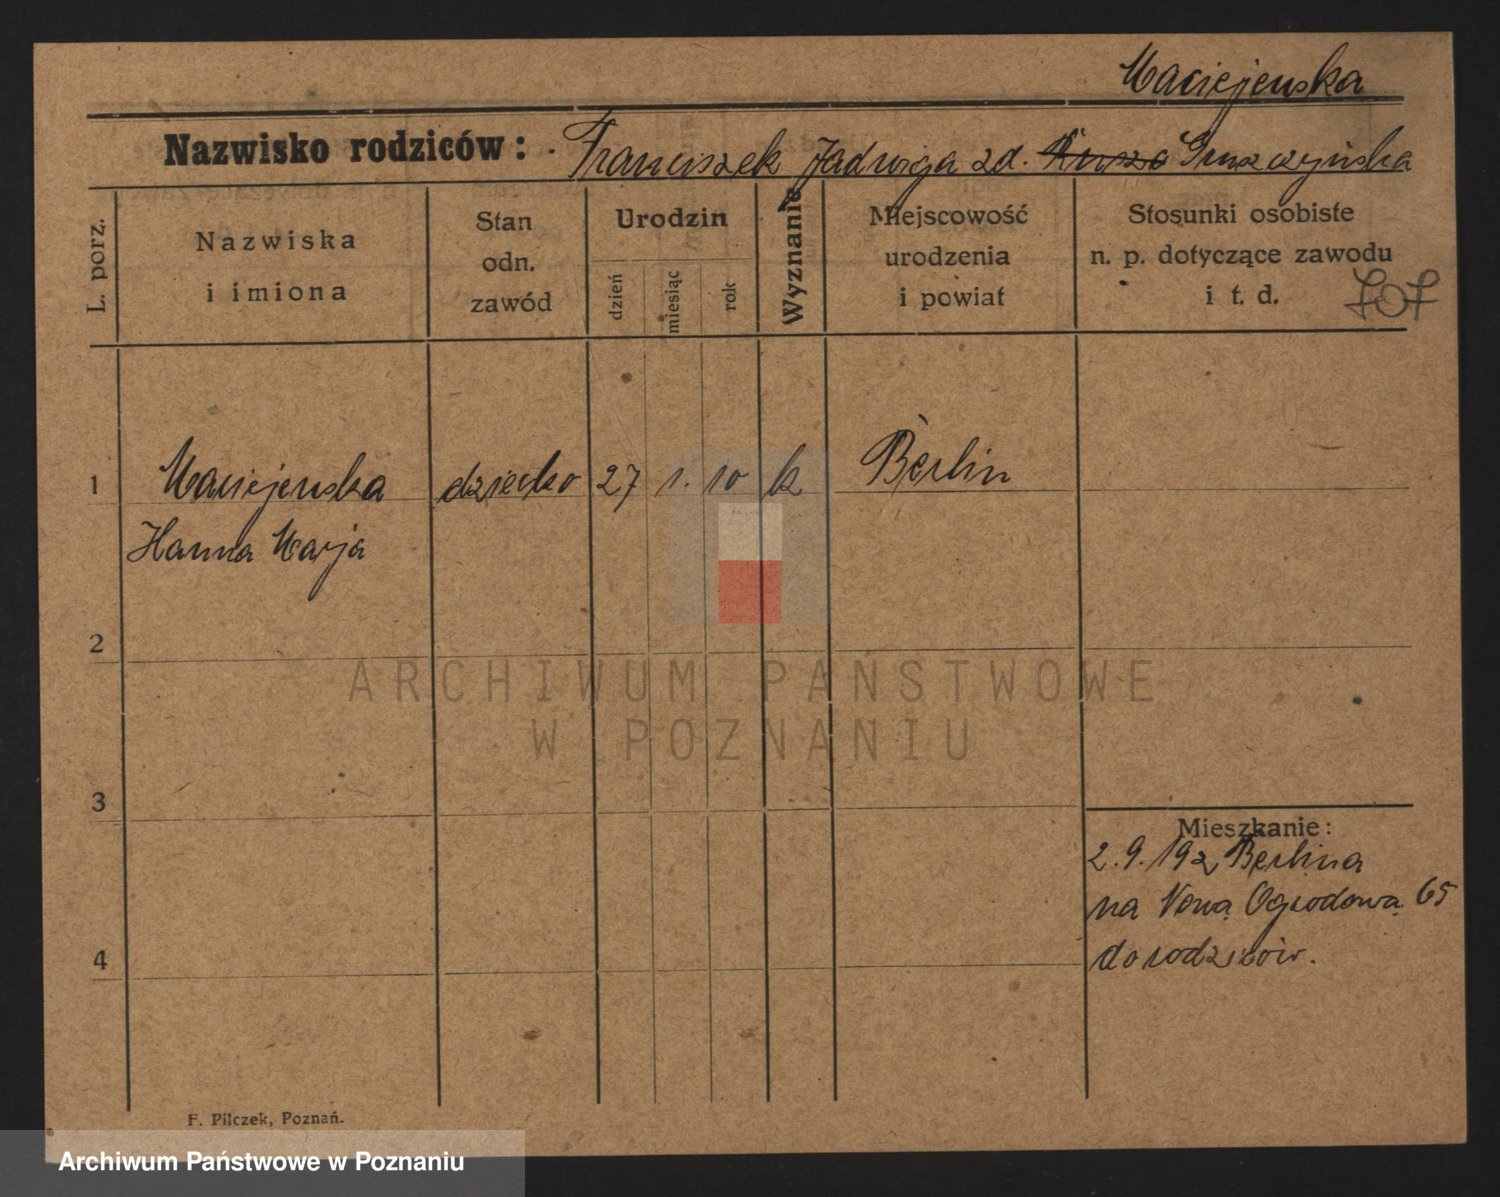 Maciejewska
Nazwisko rodziców: Franciszek Jadwiga zd. Gruszczyńska
L. porz.
Nazwiska
i imiona
Stan
odn.
zawód
Urodzin
dzień
miesiąc
rok
Wyznanie
Miejscowość
urodzenia
i powiat
Stosunki osobiste
n. p. dotyczące zawodu
i t. d.
707
1 Maciejewska dziecko 27 1. 10 k Berlin
Hanna Marja
2
3
4
Mieszkanie:
2.9.19 z Berlina
na Nową Ogrodową 65
do rodziców.
F. Pilczek, Poznań.
ARCHIWUM PAŃSTWOWE
W POZNANIU
Archiwum Państwowe w Poznaniu